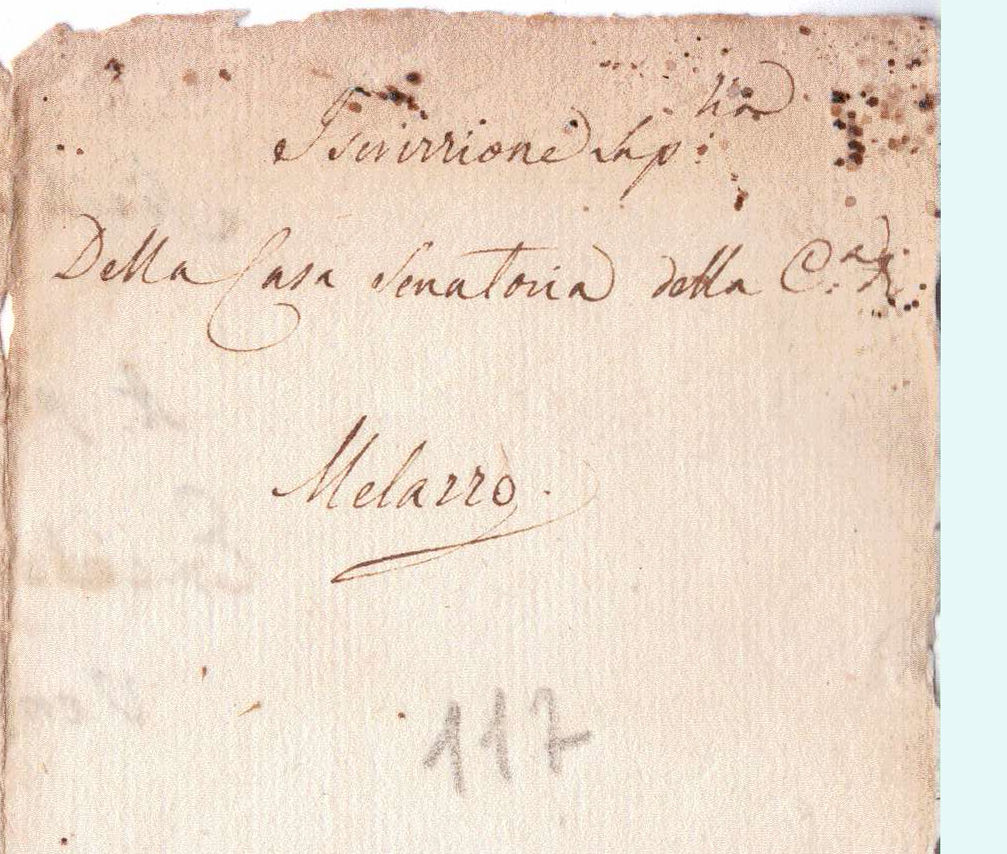 Iscrizzione Lap:ria
Della Casa Senatoria della C.a di
Melazzo.
117